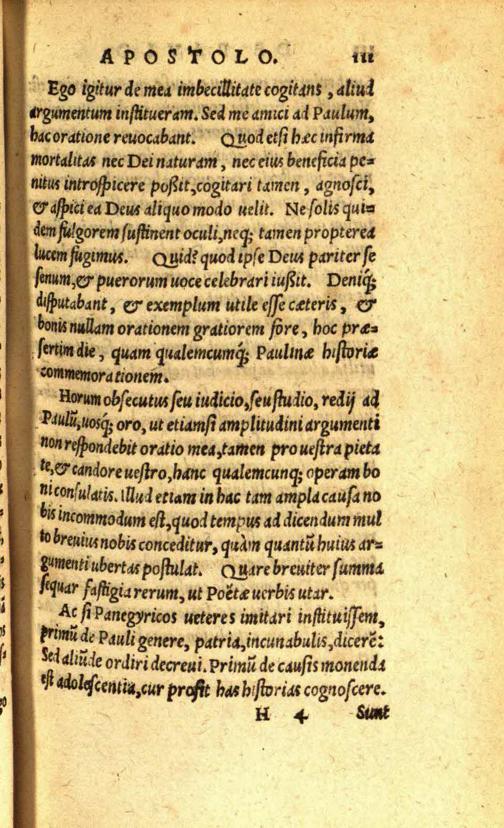 APOSTOLO. 111
Ego igitur de mea imbecillitate cogitans, aliud
argumentum institueram. Sed me amici ad Paulum,
hac oratione reuocabant. Quod etsi hæc infirma
mortalitas nec Dei naturam, nec eius beneficia pe=
nitus introspicere poßit, cogitari tamen, agnosci,
& aspici ea Deus aliquo modo uelit. Ne solis qui=
dem fulgorem sustinent oculi, neq; tamen propterea
lucem fugimus. Quid? quod ipse Deus pariter se
senum, & puerorum uoce celebrari iußit. Deniq;
disputabant, & exemplum utile esse cæteris, &
bonis nullam orationem gratiorem fore, hoc præ=
sertim die, quam qualemcumq; Paulinæ historiæ
commemorationem.
Horum obsecutus seu iudicio, seu studio, redij ad
Paulũ, uosq; oro, ut etiamsi amplitudini argumenti
non respondebit oratio mea, tamen pro uestra pieta
te, & candore uestro, hanc qualemcunq; operam bo
ni consulatis. Illud etiam in hac tam ampla causa no
bis incommodum est, quod tempus ad dicendum mul
to breuius nobis conceditur, quàm quantũ huius ar=
gumenti ubertas postulat. Quare breuiter summa
sequar fastigia rerum, ut Poëtæ uerbis utar.
Ac si Panegyricos ueteres imitari instituissem,
primũ de Pauli genere, patria, incunabulis, dicerẽ:
Sed aliũde ordiri decreui. Primũ de causis monenda
est adolescentia, cur prosit has historias cognoscere.
H 4 Sunt